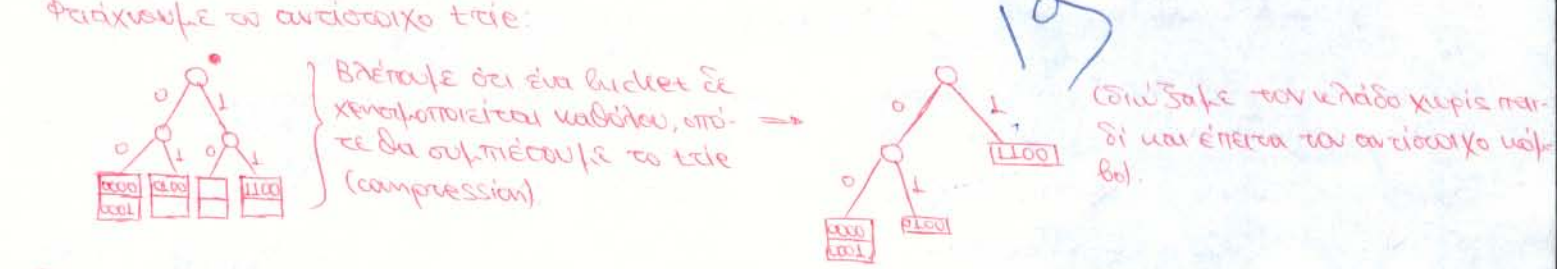 Φτιάχνουμε το αντίστοιχο trie:
19
0 1
0 1 0 1
0000 0100 1100
0001
Βλέπουμε ότι ένα bucket δε
χρησιμοποιείται καθόλου, οπό-
τε θα συμπιέσουμε το trie
(compression).
⇒
0 1
1100
0 1
0000 0100
0001
(διώξαμε τον κλάδο χωρίς παι-
δί και έπειτα τον αντίστοιχο κόμ-
βο).